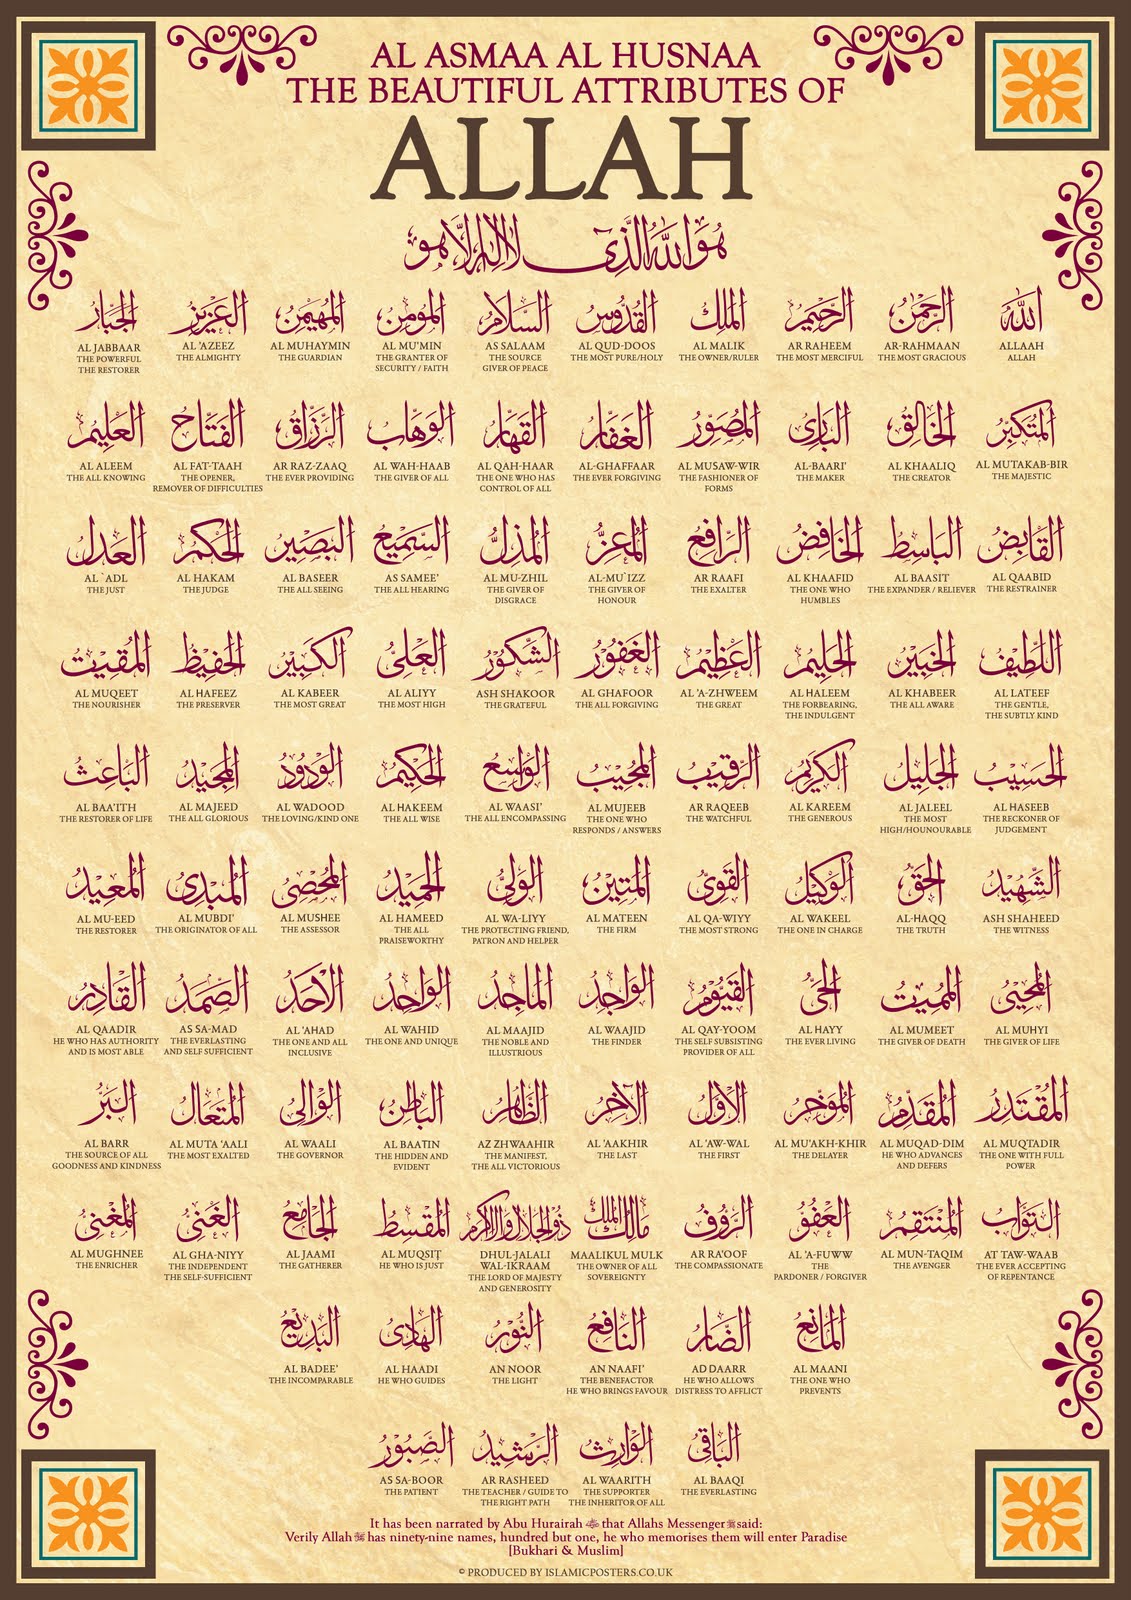 AL ASMAA AL HUSNAA
THE BEAUTIFUL ATTRIBUTES OF
ALLAH
هو الله الذى لا اله الا هو
الله
ALLAAH
ALLAH
الرحمن
AR-RAHMAAN
THE MOST GRACIOUS
الرحيم
AR RAHEEM
THE MOST MERCIFUL
الملك
AL MALIK
THE OWNER/RULER
القدوس
AL QUD-DOOS
THE MOST PURE/HOLY
السلام
AS SALAAM
THE SOURCE
GIVER OF PEACE
المؤمن
AL MU'MIN
THE GRANTER OF
SECURITY / FAITH
المهيمن
AL MUHAYMIN
THE GUARDIAN
العزيز
AL 'AZEEZ
THE ALMIGHTY
الجبار
AL JABBAAR
THE POWERFUL
THE RESTORER
المتكبر
AL MUTAKAB-BIR
THE MAJESTIC
الخالق
AL KHAALIQ
THE CREATOR
البارئ
AL-BAARI'
THE MAKER
المصور
AL MUSAW-WIR
THE FASHIONER OF
FORMS
الغفار
AL-GHAFFAAR
THE EVER FORGIVING
القهار
AL QAH-HAAR
THE ONE WHO HAS
CONTROL OF ALL
الوهاب
AL WAH-HAAB
THE GIVER OF ALL
الرزاق
AR RAZ-ZAAQ
THE EVER PROVIDING
الفتاح
AL FAT-TAAH
THE OPENER,
REMOVER OF DIFFICULTIES
العليم
AL ALEEM
THE ALL KNOWING
القابض
AL QAABID
THE RESTRAINER
الباسط
AL BAASIT
THE EXPANDER / RELIEVER
الخافض
AL KHAAFID
THE ONE WHO
HUMBLES
الرافع
AR RAAFI
THE EXALTER
المعز
AL-MU`IZZ
THE GIVER OF
HONOUR
المذل
AL MU-ZHIL
THE GIVER OF
DISGRACE
السميع
AS SAMEE'
THE ALL HEARING
البصير
AL BASEER
THE ALL SEEING
الحكم
AL HAKAM
THE JUDGE
العدل
AL `ADL
THE JUST
اللطيف
AL LATEEF
THE GENTLE,
THE SUBTLY KIND
الخبير
AL KHABEER
THE ALL AWARE
الحليم
AL HALEEM
THE FORBEARING,
THE INDULGENT
العظيم
AL 'A-ZHWEEM
THE GREAT
الغفور
AL GHAFOOR
THE ALL FORGIVING
الشكور
ASH SHAKOOR
THE GRATEFUL
العلى
AL ALIYY
THE MOST HIGH
الكبير
AL KABEER
THE MOST GREAT
الحفيظ
AL HAFEEZ
THE PRESERVER
المقيت
AL MUQEET
THE NOURISHER
الحسيب
AL HASEEB
THE RECKONER OF
JUDGEMENT
الجليل
AL JALEEL
THE MOST
HIGH/HOUNOURABLE
الكريم
AL KAREEM
THE GENEROUS
الرقيب
AR RAQEEB
THE WATCHFUL
المجيب
AL MUJEEB
THE ONE WHO
RESPONDS / ANSWERS
الواسع
AL WAASI'
THE ALL ENCOMPASSING
الحكيم
AL HAKEEM
THE ALL WISE
الودود
AL WADOOD
THE LOVING/KIND ONE
المجيد
AL MAJEED
THE ALL GLORIOUS
الباعث
AL BAA'ITH
THE RESTORER OF LIFE
الشهيد
ASH SHAHEED
THE WITNESS
الحق
AL-HAQQ
THE TRUTH
الوكيل
AL WAKEEL
THE ONE IN CHARGE
القوى
AL QA-WIYY
THE MOST STRONG
المتين
AL MATEEN
THE FIRM
الولى
AL WA-LIYY
THE PROTECTING FRIEND,
PATRON AND HELPER
الحميد
AL HAMEED
THE ALL
PRAISEWORTHY
المحصى
AL MUSHEE
THE ASSESSOR
المبدى
AL MUBDI'
THE ORIGINATOR OF ALL
المعيد
AL MU-EED
THE RESTORER
المحيى
AL MUHYI
THE GIVER OF LIFE
المميت
AL MUMEET
THE GIVER OF DEATH
الحى
AL HAYY
THE EVER LIVING
القيوم
AL QAY-YOOM
THE SELF SUBSISTING
PROVIDER OF ALL
الواجد
AL WAAJID
THE FINDER
الماجد
AL MAAJID
THE NOBLE AND
ILLUSTRIOUS
الواحد
AL WAHID
THE ONE AND UNIQUE
الاحد
AL 'AHAD
THE ONE AND ALL
INCLUSIVE
الصمد
AS SA-MAD
THE EVERLASTING
AND SELF SUFFICIENT
القادر
AL QAADIR
HE WHO HAS AUTHORITY
AND IS MOST ABLE
المقتدر
AL MUQTADIR
THE ONE WITH FULL
POWER
المقدم
AL MUQAD-DIM
HE WHO ADVANCES
AND DEFERS
المؤخر
AL MU'AKH-KHIR
THE DELAYER
الاول
AL 'AW-WAL
THE FIRST
الآخر
AL 'AAKHIR
THE LAST
الظاهر
AZ ZHWAAHIR
THE MANIFEST,
THE ALL VICTORIOUS
الباطن
AL BAATIN
THE HIDDEN AND
EVIDENT
الوالى
AL WAALI
THE GOVERNOR
المتعال
AL MUTA 'AALI
THE MOST EXALTED
البر
AL BARR
THE SOURCE OF ALL
GOODNESS AND KINDNESS
التواب
AT TAW-WAAB
THE EVER ACCEPTING
OF REPENTANCE
المنتقم
AL MUN-TAQIM
THE AVENGER
العفو
AL 'A-FUWW
THE
PARDONER / FORGIVER
الرؤوف
AR RA'OOF
THE COMPASSIONATE
مالك الملك
MAALIKUL MULK
THE OWNER OF ALL
SOVEREIGNTY
ذو الجلال والاكرام
DHUL-JALALI
WAL-IKRAAM
THE LORD OF MAJESTY
AND GENEROSITY
المقسط
AL MUQSIT
HE WHO IS JUST
الجامع
AL JAAMI
THE GATHERER
الغنى
AL GHA-NIYY
THE INDEPENDENT
THE SELF-SUFFICIENT
المغنى
AL MUGHNEE
THE ENRICHER
المانع
AL MAANI
THE ONE WHO
PREVENTS
الضار
AD DAARR
HE WHO ALLOWS
DISTRESS TO AFFLICT
النافع
AN NAAFI'
THE BENEFACTOR
HE WHO BRINGS FAVOUR
النور
AN NOOR
THE LIGHT
الهادى
AL HAADI
HE WHO GUIDES
البديع
AL BADEE'
THE INCOMPARABLE
الباقى
AL BAAQI
THE EVERLASTING
الوارث
AL WAARITH
THE SUPPORTER
THE INHERITOR OF ALL
الرشيد
AR RASHEED
THE TEACHER / GUIDE TO
THE RIGHT PATH
الصبور
AS SA-BOOR
THE PATIENT
It has been narrated by Abu Hurairah that Allahs Messenger ﷺ said:
Verily Allah has ninety-nine names, hundred but one, he who memorises them will enter Paradise
[Bukhari & Muslim]
© PRODUCED BY ISLAMICPOSTERS.CO.UK